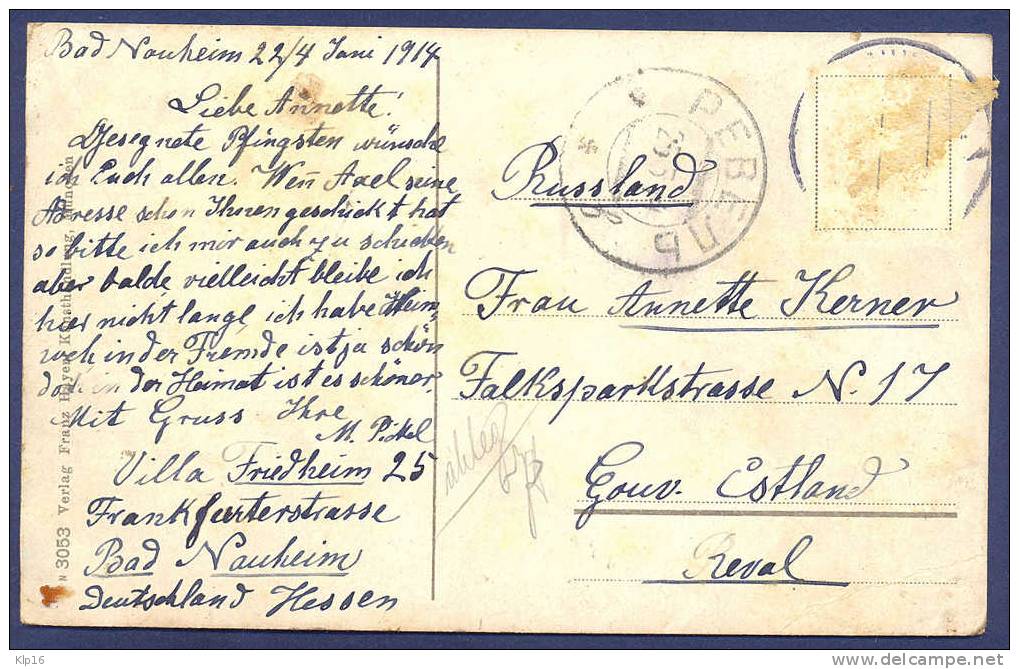 Bad Nauheim 22/4 Juni 1914
Liebe Annette!
Gesegnete Pfingsten wünsche
ich Euch allen. Wen̄ Axel seine
Adresse schon Ihnen geschickt hat
so bitte ich mir auch zu schicken
aber balde vielleicht bleibe ich
hier nicht lange ich habe Heim-
weh in der Fremde ist ja schön
doch in der Heimat ist es schöner.
Mit Gruss Ihre
M. Pikel
Villa Friedheim 25
Frankfurterstrasse
Bad Nauheim
Deutschland Hessen
РЕВЕЛЬ
Russland
Frau Annette Kerner
Falksparkstrasse N. 17
Gouv. Estland
Reval
N 3053 Verlag Franz Kunsthandlung, München
Klp16
www.delcampe.net